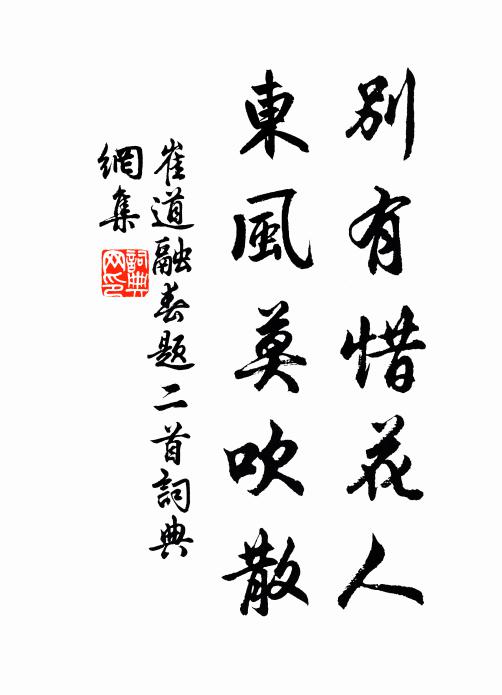 別有惜花人
東風莫吹散
崔道融春題二首詞典
網集
詞典
网印